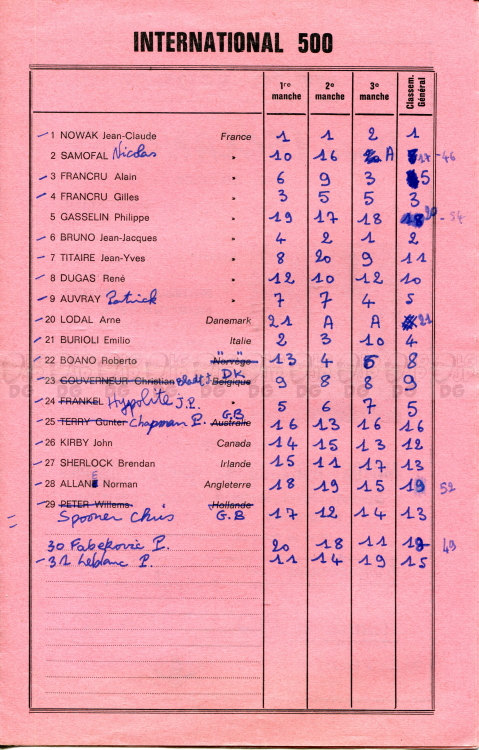 INTERNATIONAL 500
1re manche 2e manche 3e manche Classem. Général
1 NOWAK Jean-Claude France 1 1 2 1
2 SAMOFAL Nicolas " 10 16 A 17 - 46
3 FRANCRU Alain " 6 9 3 5
4 FRANCRU Gilles " 3 5 5 3
5 GASSELIN Philippe " 19 17 18 20 - 54
6 BRUNO Jean-Jacques " 4 2 1 2
7 TITAIRE Jean-Yves " 8 20 9 11
8 DUGAS René " 12 10 12 10
9 AUVRAY Patrick " 7 7 4 5
20 LODAL Arne Danemark 21 A A 21
21 BURIOLI Emilio Italie 2 3 10 4
22 BOANO Roberto " Norvège " 13 4 6 8
23 GOUVERNEUR Christian Belgique DK 9 8 8 9
24 FRANKEL Hypolite J.P. " 5 6 7 5
25 TERRY Gunter Chapman P. Australie G.B 16 13 16 16
26 KIRBY John Canada 14 15 13 12
27 SHERLOCK Brendan Irlande 15 11 17 13
28 ALLAN Norman Angleterre 18 19 15 19 52
29 PETER Willems Hollande
Spooner Chris G.B 17 12 14 13
30 Fabekovic P. 20 18 11 49
31 Leblanc P. 11 14 19 15